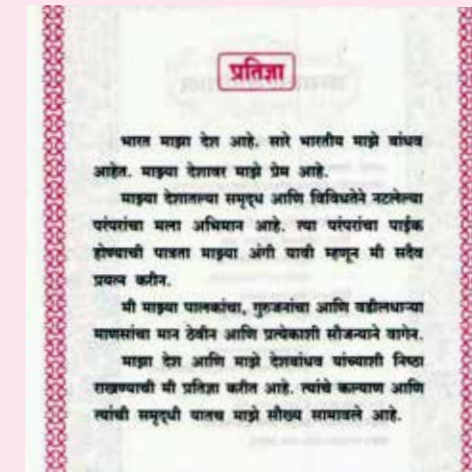 प्रतिज्ञा
भारत माझा देश आहे. सारे भारतीय माझे बांधव
आहेत. माझ्या देशावर माझे प्रेम आहे.
माझ्या देशातल्या समृद्ध आणि विविधतेने नटलेल्या
परंपरांचा मला अभिमान आहे. त्या परंपरांचा पाईक
होण्याची पात्रता माझ्या अंगी यावी म्हणून मी सदैव
प्रयत्न करीन.
मी माझ्या पालकांचा, गुरुजनांचा आणि वडीलधाऱ्या
माणसांचा मान ठेवीन आणि प्रत्येकाशी सौजन्याने वागेन.
माझा देश आणि माझे देशबांधव यांच्याशी निष्ठा
राखण्याची मी प्रतिज्ञा करीत आहे. त्यांचे कल्याण आणि
त्यांची समृद्धी यातच माझे सौख्य सामावले आहे.